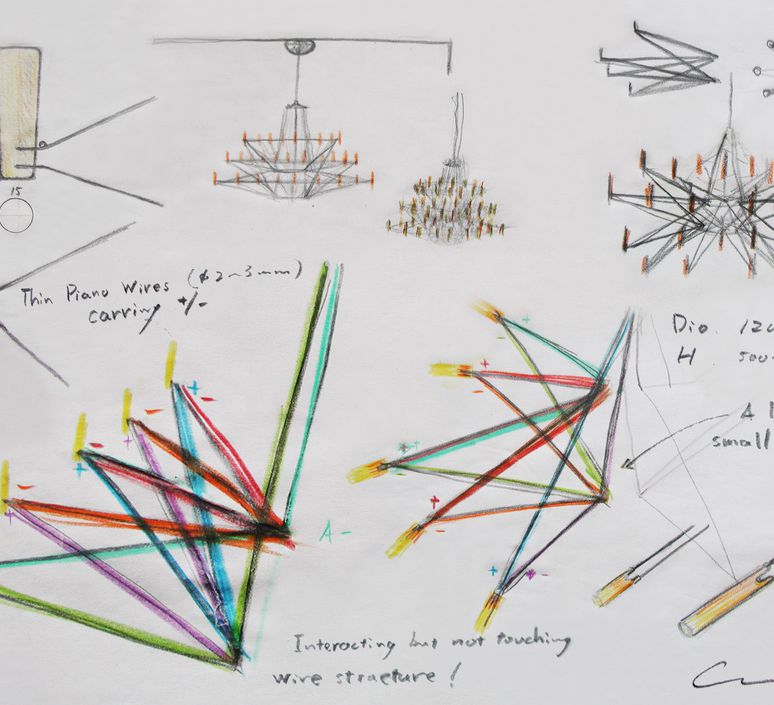 15
Thin Piano Wires (φ2~3mm)
carring +/-
Dia. 120
H 500
A
small
A -
Interacting but not touching
wire structure !